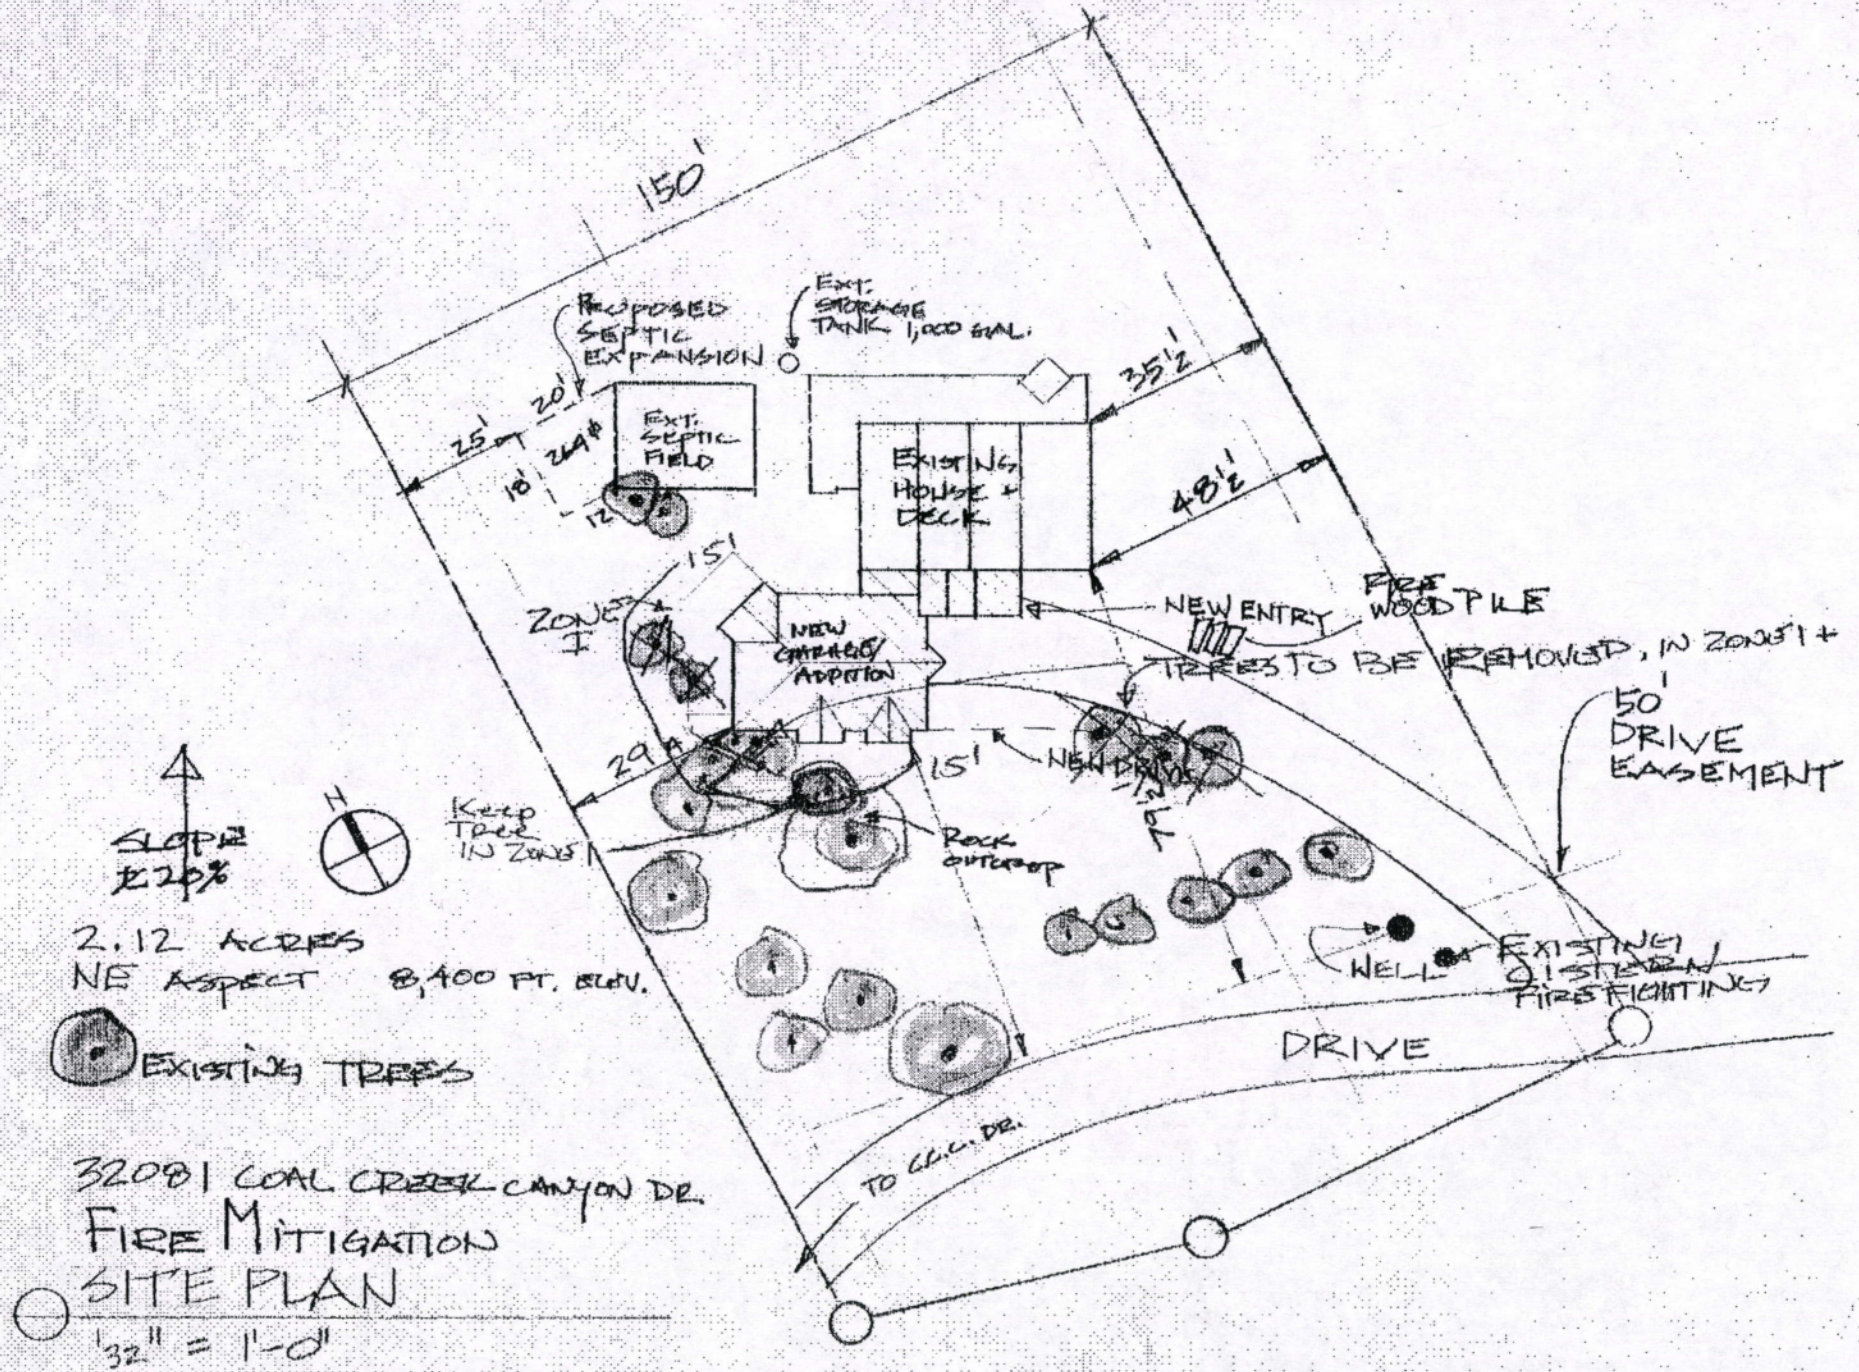 150'
PROPOSED
SEPTIC
EXPANSION
EXT.
STORAGE
TANK 1,000 GAL.
35½'
20'
25'
18'
12
EXT.
SEPTIC
FIELD
EXISTING
HOUSE +
DECK
48½'
15'
ZONE
I
NEW
GARAGE/
ADDITION
NEW ENTRY
FIRE
WOOD PILE
TREES TO BE REMOVED, IN ZONE 1 +
50'
DRIVE
EASEMENT
29
15'
NEW DRIVE
N
SLOPE
20%
Keep
Tree
IN ZONE 1
ROCK
OUTCROP
2.12 ACRES
NE ASPECT 8,400 FT. ELEV.
WELL
EXISTING
CISTERN
FIREFIGHTING
EXISTING TREES
DRIVE
TO C.C.C. DR.
32081 COAL CREEK CANYON DR.
FIRE MITIGATION
SITE PLAN
1/32" = 1'-0"